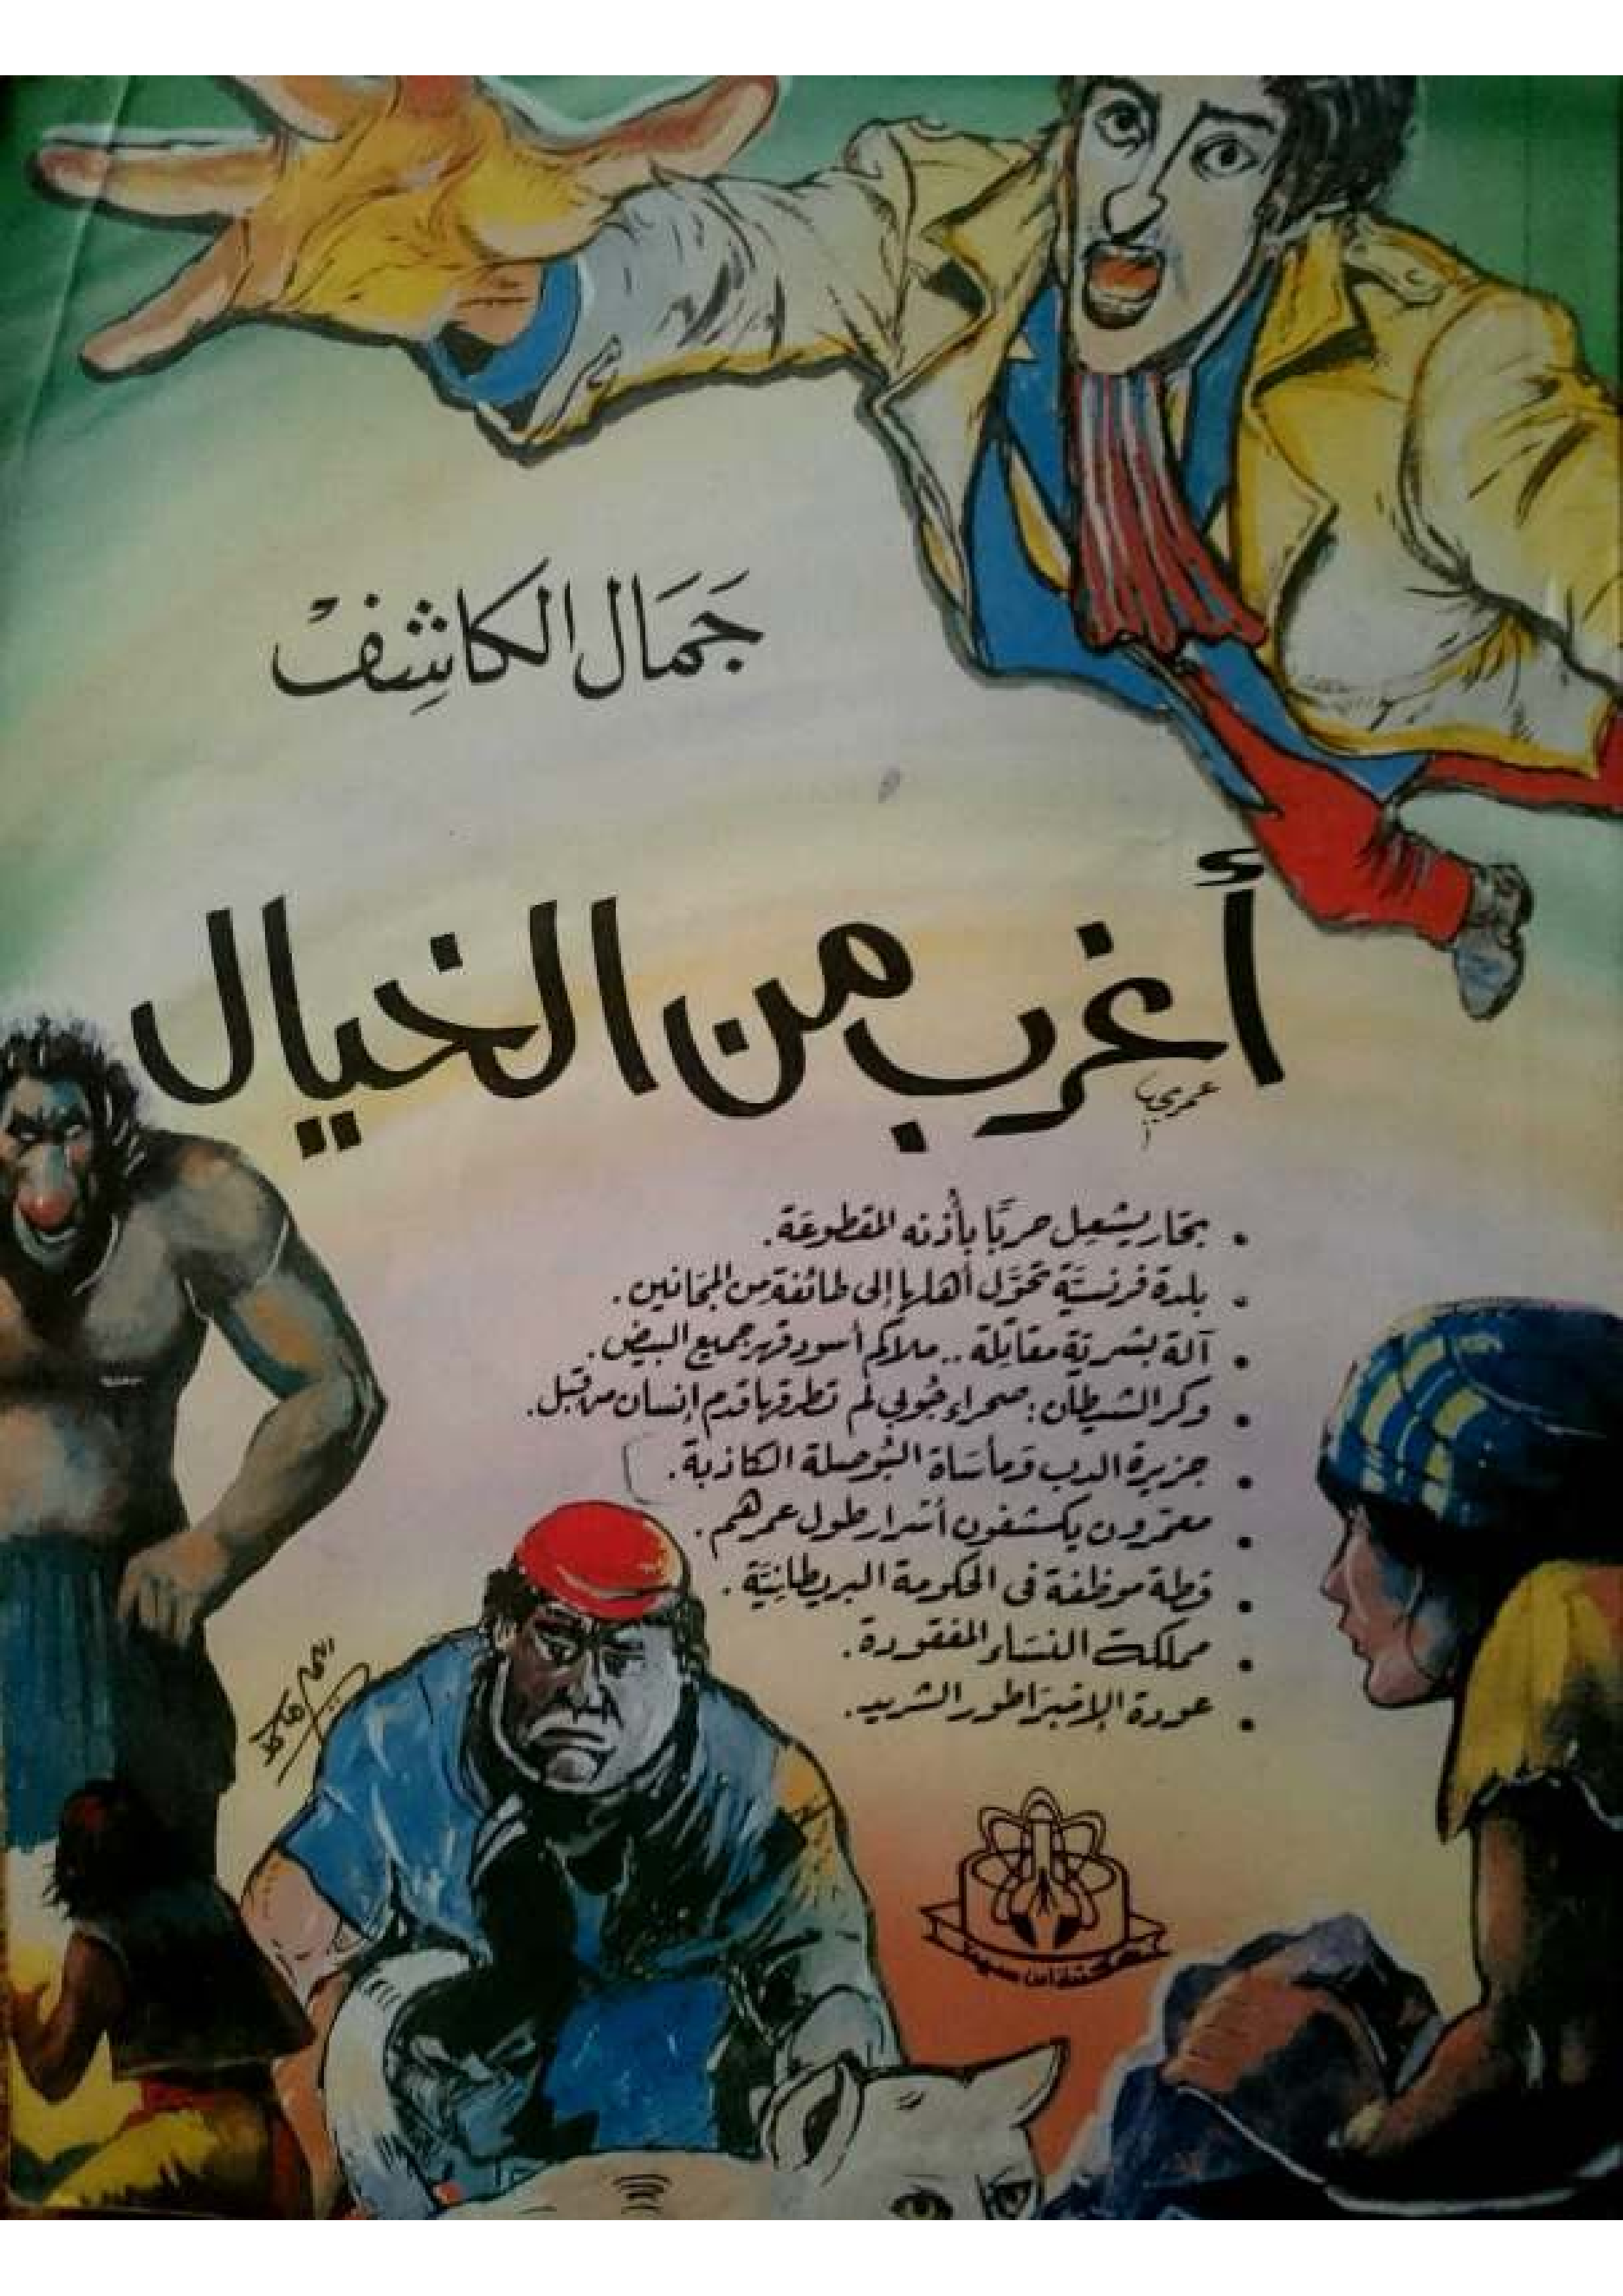 جَمَال الكاشِفْ
أغرب من الخيال
• بحّار يشعل حربًا بأُذنه المقطوعَة.
• بلدة فرنسيَّة تحَوَّل أهلها إلى طائفة من المجَانين.
• آلة بشريَّة مقاتِلة .. ملاكم أسود قهر جميع البيض.
• وكر الشيطان : صحراء جُوبي لم تطرقها قدم إنسان من قبل.
• جزيرة الدب وَمأسَاة البُوصلة الكاذبة.
• معمّرون يكشفون أسْرار طول عمرهم.
• قطة موظفة فى الحكومة البريطانِيَّة.
• مملكة النسَاء المفقودة.
• عودة الإمْبرَاطور الشريد.
مكتبة ابن سينا